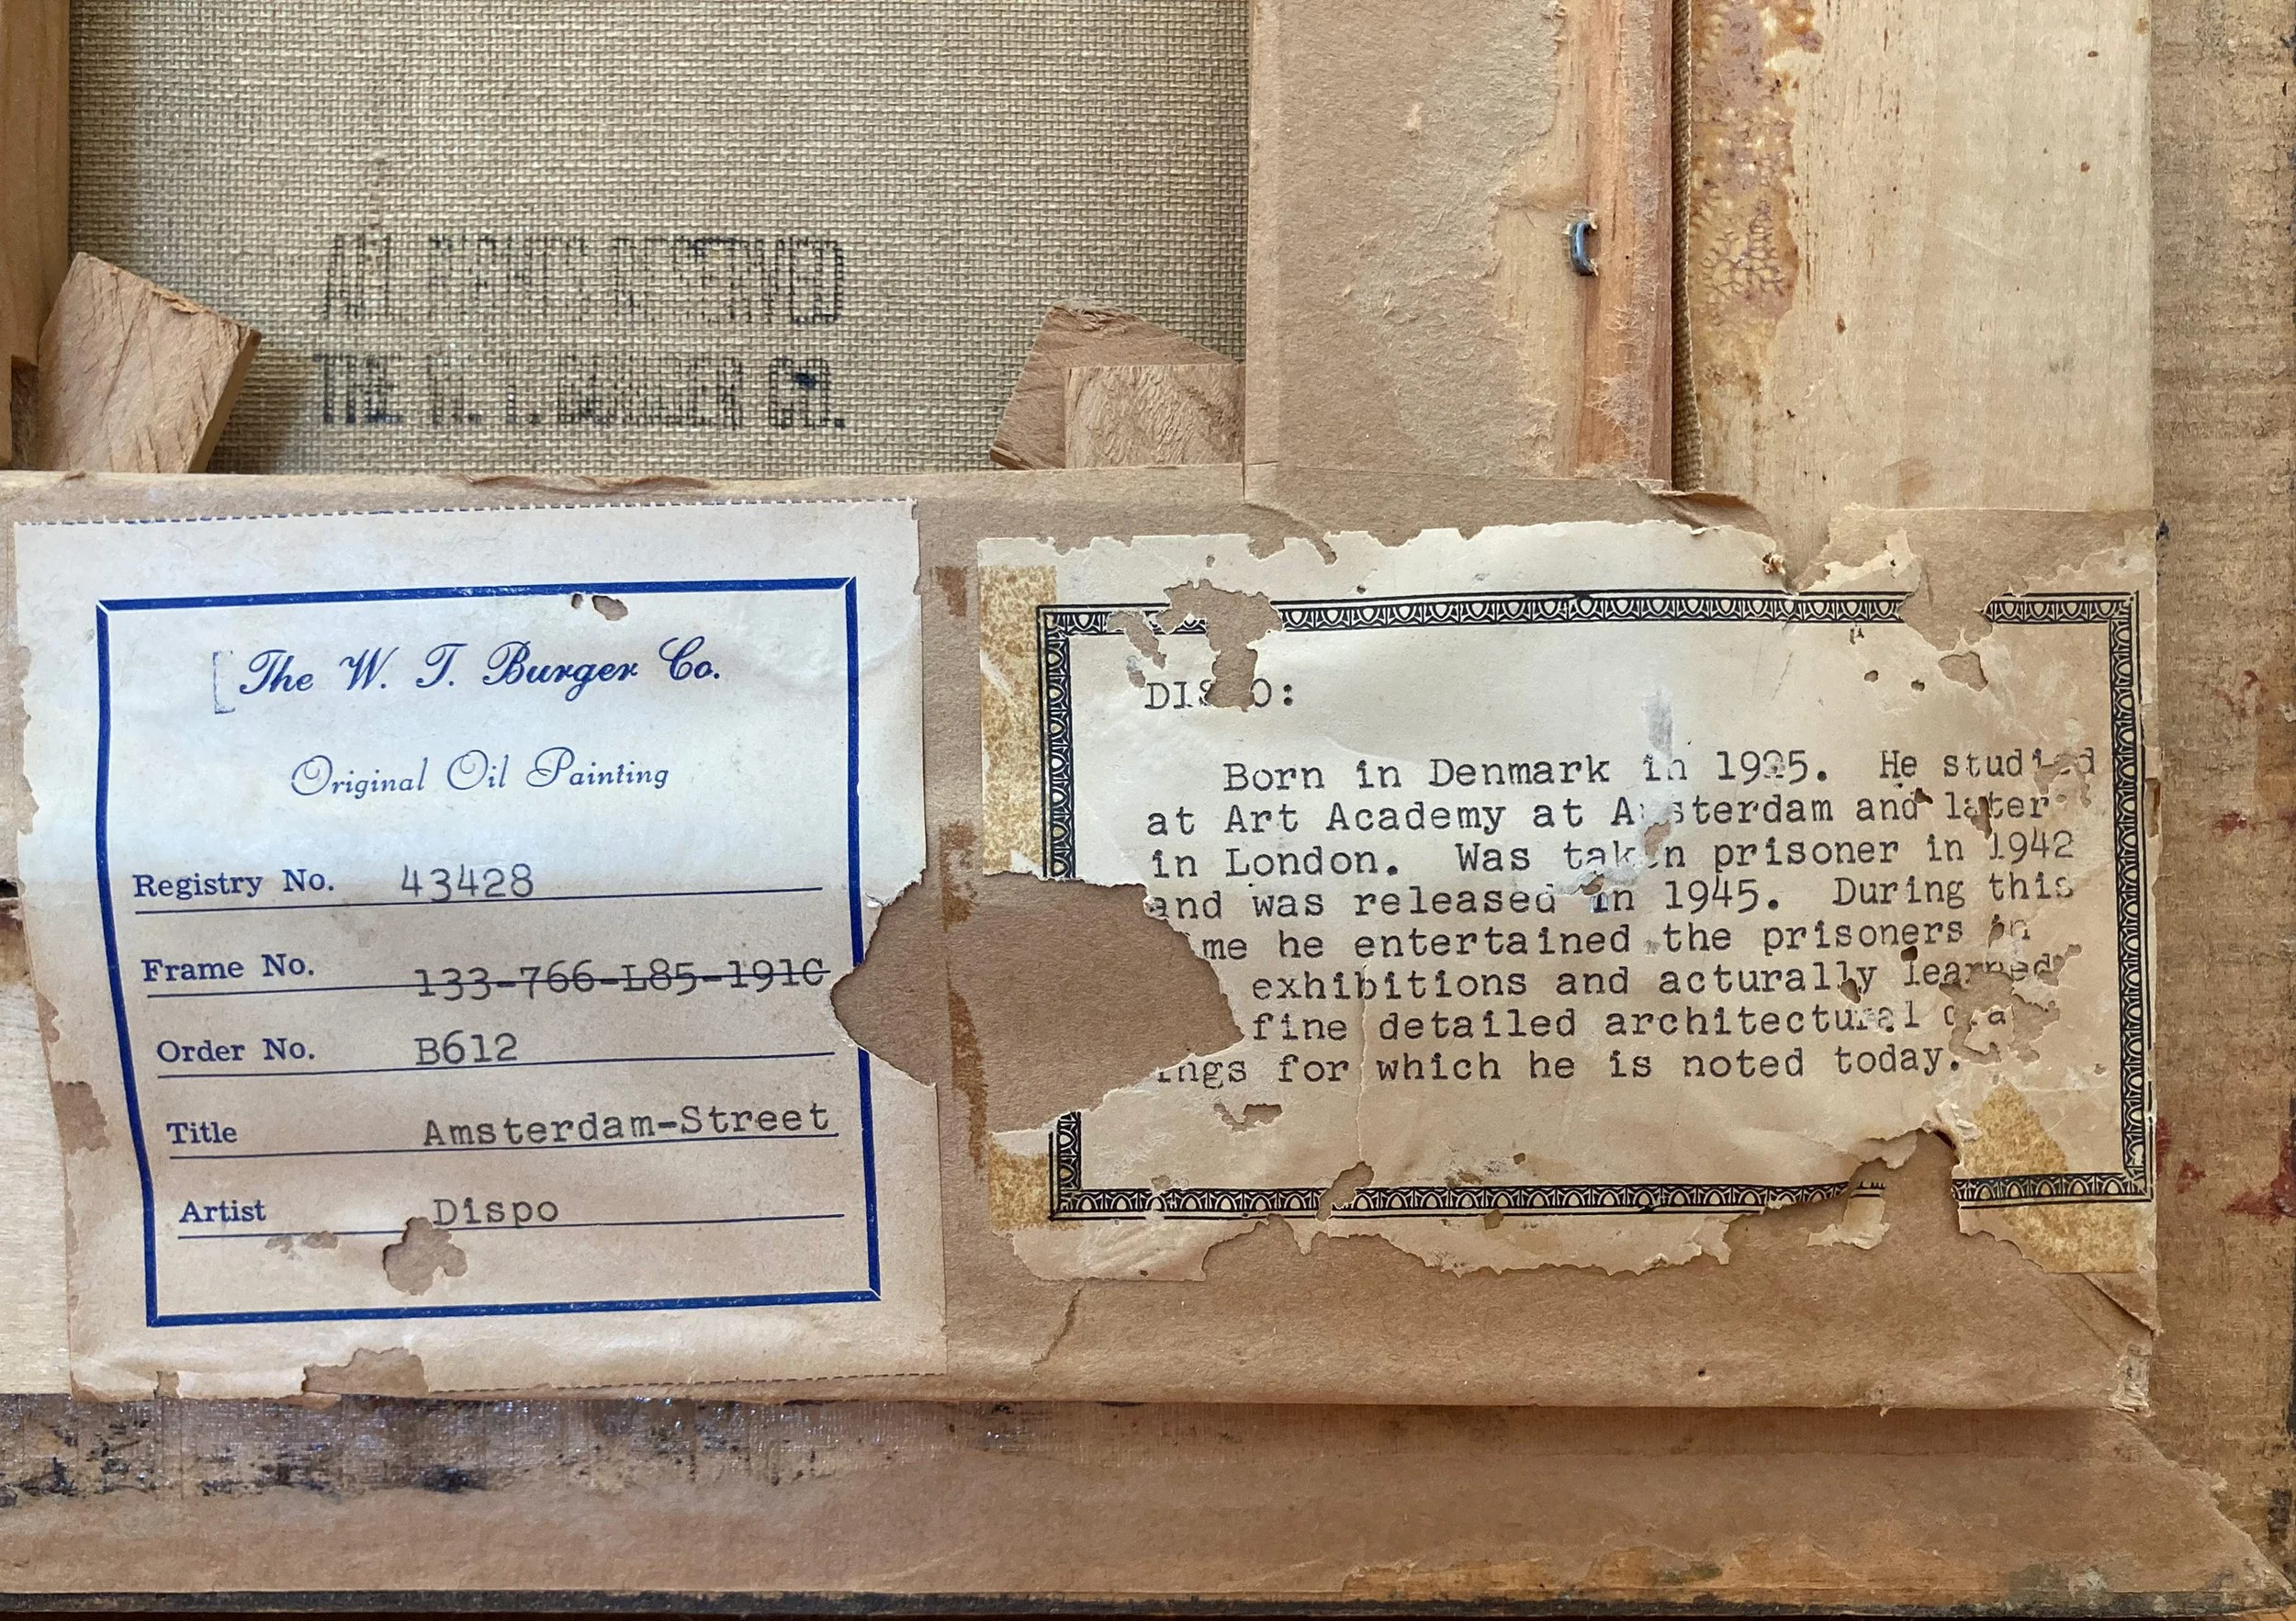 ALL RIGHTS RESERVED
THE W. T. BURGER CO.
The W. T. Burger Co.
Original Oil Painting
Registry No. 43428
Frame No. 133-766-L85-191C
Order No. B612
Title Amsterdam-Street
Artist Dispo
DISPO:
Born in Denmark in 1925. He studied
at Art Academy at Amsterdam and later
in London. Was taken prisoner in 1942
and was released in 1945. During this
me he entertained the prisoners in
exhibitions and acturally learned
fine detailed architectural
ings for which he is noted today.